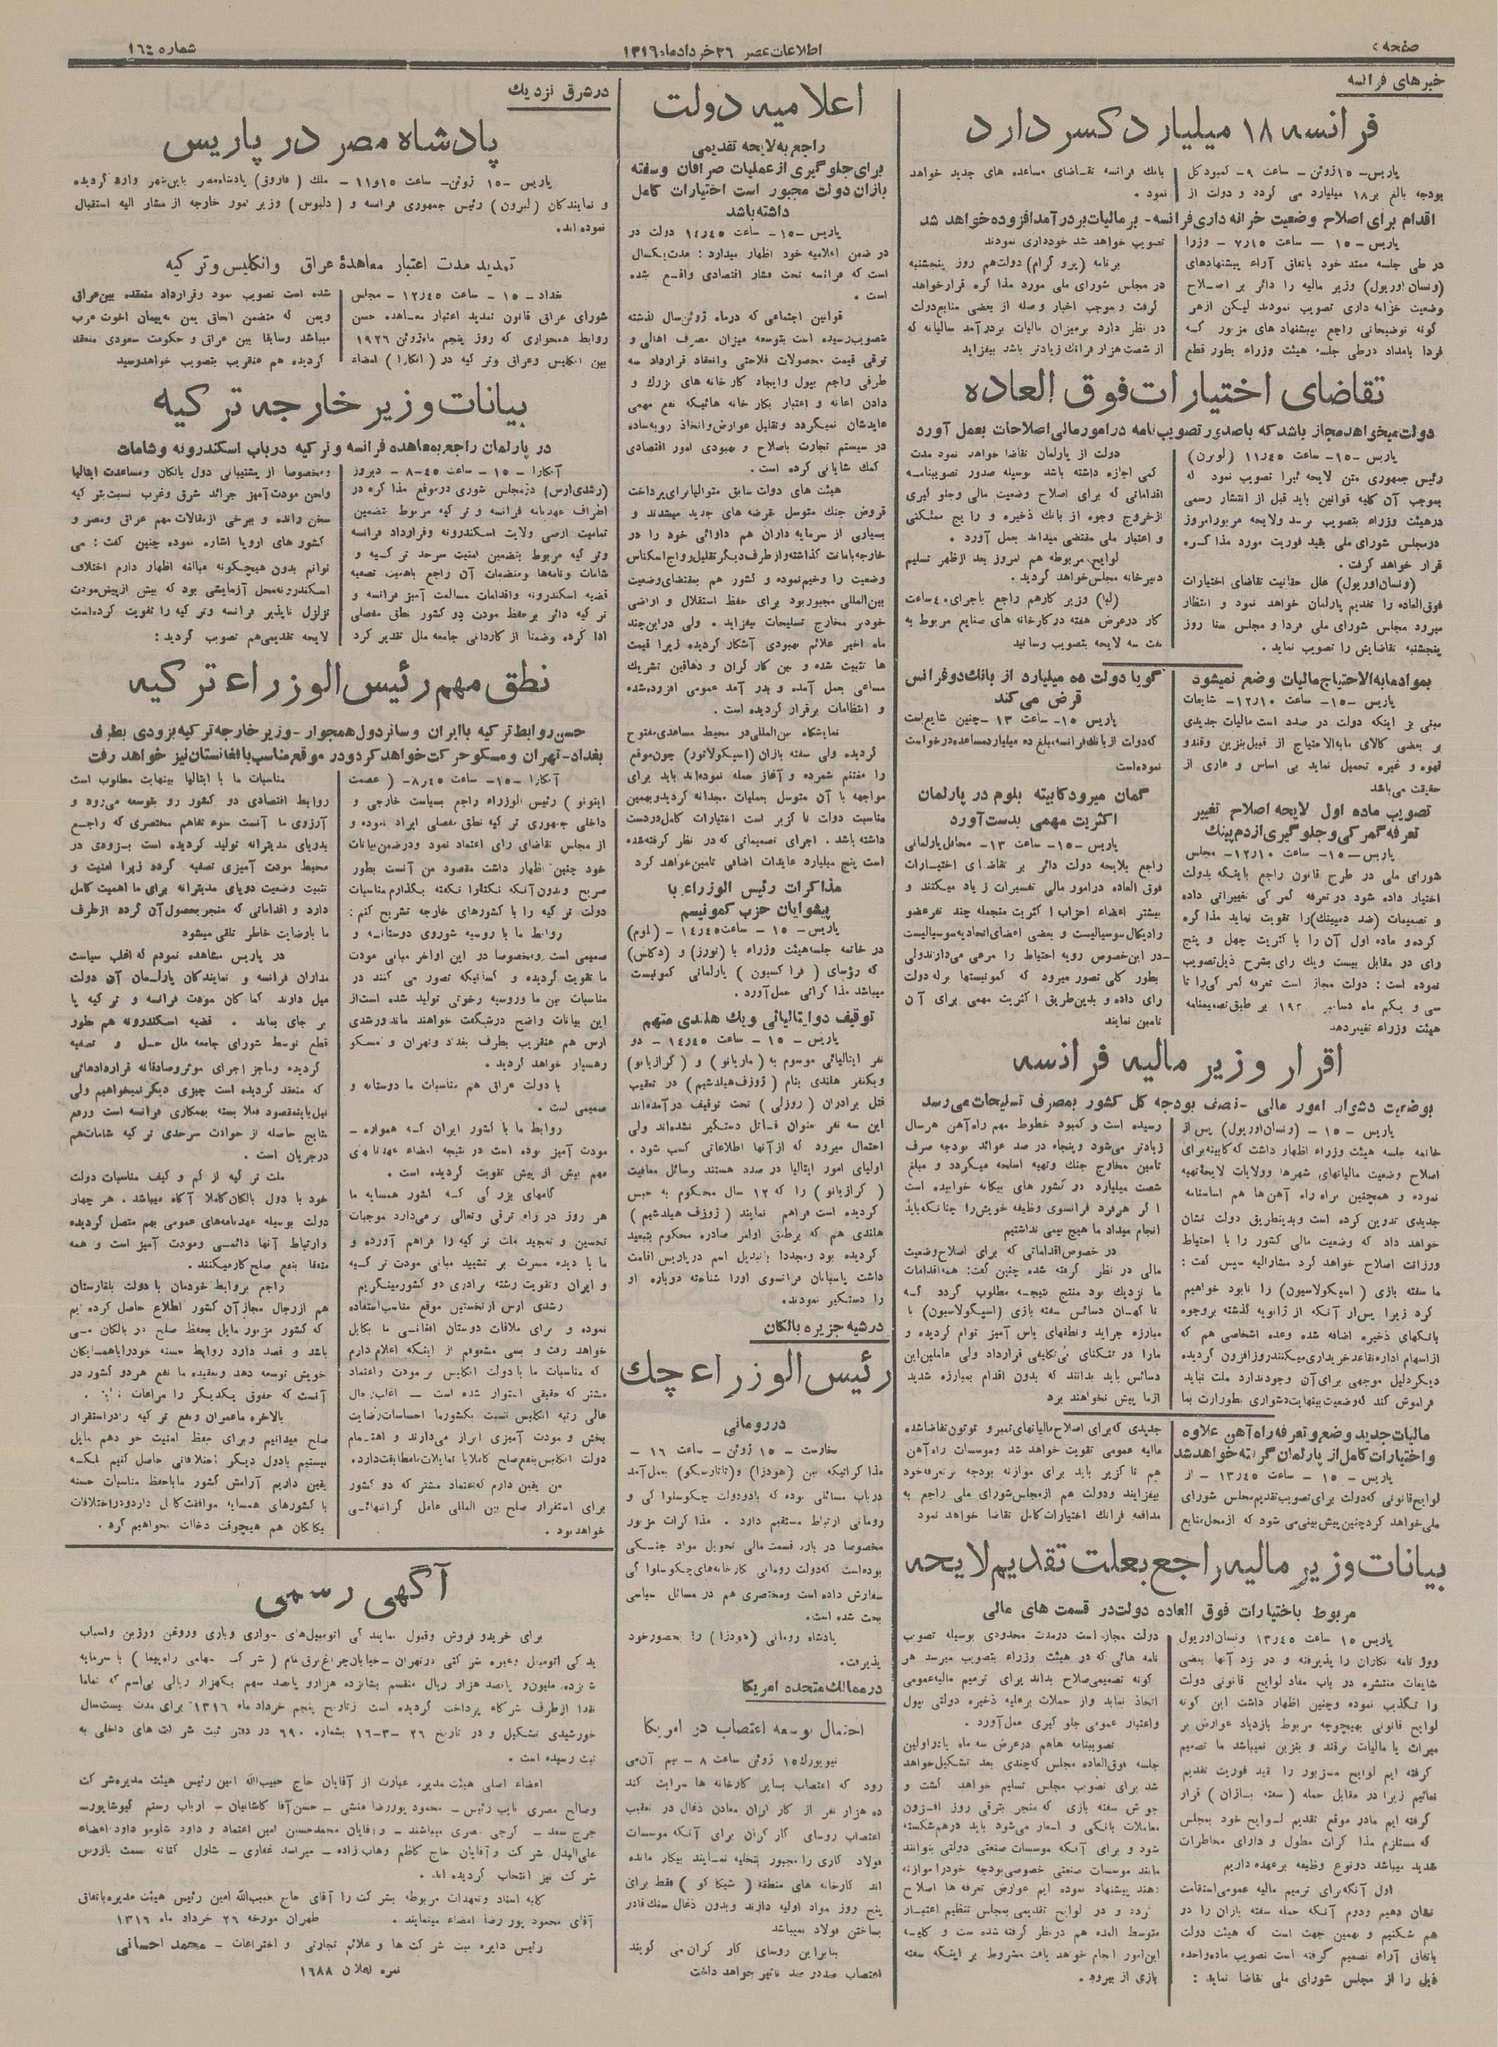 صفحه
اطلاعات عصر ۲۶ خرداد ماه ۱۳۱۶
شماره ۱۶٤
خبرهای فرانسه
فرانسه ۱۸ میلیارد کسر دارد
پاریس- ۱۵ ژوئن - ساعت ۹- کمبود کل
بودجه بالغ بر ۱۸ میلیارد می گردد و دولت از
بانك فرانسه تقاضای مساعده های جدید خواهد
نمود .
اقدام برای اصلاح وضعیت خزانه داری فرانسه- بر مالیات بر درآمد افزوده خواهد شد
پاریس -۱۵ — ساعت ۷٫۱۵ - وزرا
در طی جلسه ممتد خود باتفاق آراء پیشنهادهای
(ونسان اوریول) وزیر مالیه را دائر بر اصلاح
وضعیت خزانه داری تصویب نمودند لیکن از هر
گونه توضیحاتی راجع بپیشنهاد های مزبور که
فردا بامداد درطی جلسه هیئت وزراء بطور قطع
تصویب خواهد شد خودداری نمودند
برنامه (پرو گرام) دولت هم روز پنجشنبه
در مجلس شورای ملی مورد مذا کره قرار خواهد
گرفت و موجب اخبار و صله از بعضی منابع دولت
در نظر دارد برمیزان مالیات بردرآمد سالیانه که
از شصت هزار فرانك زیادتر باشد بیفزاید
تقاضای اختیارات فوق العاده
دولت میخواهد مجاز باشد که باصدور تصویب نامه در امور مالی اصلاحات بعمل آورد
پاریس -۱۵- ساعت ۱۱٫٤۵ (لوبرن)
رئیس جمهوری متن لایحه ئیرا تصویب نمود که
بموجب آن کلیه قوانین باید قبل از انتشار رسمی
درهیئت وزراء بتصویب برسد ولایحه مزبورامروز
درمجلس شورای ملی بقید فوریت مورد مذا کره
قرار خواهد گرفت .
(ونسان اوریول) علل حقانیت تقاضای اختیارات
فوق العاده را تقدیم پارلمان خواهد نمود و انتظار
میرود مجلس شورای ملی فردا و مجلس سنا روز
پنجشنبه تقاضایش را تصویب نماید .
دولت از پارلمان تقاضا خواهد نمود مدت
کمی اجازه داشته باشد بوسیله صدور تصویبنامه
اقداماتی که برای اصلاح وضعیت مالی وجلو گیری
ازخروج وجوه از بانك ذخیره و را یج مملکتی
و اعتبار ملی مقتضی میداند بعمل آورد .
لوایح مربوطه هم امروز بعد ازظهر تسلیم
دبیرخانه مجلس خواهد گردید .
(لبا) وزیر کارهم راجع باجرای ٤۰ ساعت
کار درعرض هفته در کارخانه های صنایع مربوط به
نفت سه لایحه بتصویب رسانید
بمواد مابه الاحتیاج مالیات وضع نمیشود
پاریس -۱۵- ساعت ۱۲٫۱۰- شایعات
مبنی بر اینکه دولت در صدد است مالیات جدیدی
بر بعضی کالای مابه الاحتیاج از قبیل بنزین وقند و
قهوه و غیره تحمیل نماید بی اساس و عاری از
حقیقت می باشد
تصویب ماده اول لایحه اصلاح تغییر
تعرفه گمر کی و جلو گیری از دمپینك
پاریس—۱۵- ساعت ۱۲٫۱۰- مجلس
شورای ملی در طرح قانون راجع باینکه بدولت
اختیار داده شود در تعرفه گمر کی تغییراتی داده
و تصمیمات (ضد دمپینك) را تقویت نماید مذا کره
کرده و ماده اول آن را با کثریت چهل و پنج
رای در مقابل بیست ویك رای بشرح ذیل تصویب
نموده است : دولت مجاز است تعرفه گمر کی را تا
سی و یکم ماه دسامبر بر طبق تصمیمنامه
هیئت وزراء تغییر دهد
گویا دولت ده میلیارد از بانك دو فرانس
قرض می کند
پاریس ۱۵- ساعت ۱۳ -چنین شایع است
که دولت از بانك فرانسه، بلغ ده میلیارد مساعده درخواست
نموده است
گمان میرود کابینه بلوم در پارلمان
اکثریت مهمی بدست آورد
پاریس -۱۵- ساعت ۱۳- محافل پارلمانی
راجع بلایحه دولت دائر بر تقاضای اختیارات
فوق العاده درامور مالی تفسیرات ز یاد میکنند و
بیشتر اعضاء احزاب ا کثریت منجمله چند نفر عضو
رادیکال سوسیالیست و بعضی اعضای اتحادیه سوسیالیست
-در این خصوص رویه احتیاط را مرعی می دارند ولی
بطور کلی تصور میرود که کمونیستها برله دولت
رای داده و بدین طریق ا کثریت مهمی برای آن
تامین نمایند
اقرار وزیر مالیه فرانسه
بوضعیت دشوار امور مالی -نصف بودجه کل کشور بمصرف تسلیحات می رسد
پاریس -۱۵- (ونسان اوریول) پس از
خاتمه جلسه هیئت وزراء اظهار داشت که کابینه برای
اصلاح وضعیت مالیاتهای شهرها وولایات لایحه تهیه
نموده و همچنین براه راه آهن ها هم اساسنامه
جدیدی تدوین کرده است وبدینطریق دولت نشان
خواهد داد که وضعیت مالی کشور را با احتیاط
ورزانت اصلاح خواهد کرد مشارالیه سپس گفت :
ما سفته بازی (اسپکولاسیون) را نابود خواهیم
کرد زیرا پس از آنکه از ژانویه گذشته بر وجوه
بانکهای ذخیره اضافه شده وعده اشخاصی هم که
از اسهام اداره تقاعد خریداری میکنند روز افزون گردیده
دیگر دلیل موجهی برای آن وجود ندارد ملت نباید
فراموش کند که وضعیت بینهایت دشواری بطور وارث بما
رسیده است و کمبود خطوط مهم راه آهن هر سال
زیادتر می شود وپنجاه در صد عوائد بودجه صرف
تامین مخارج جنك وتهیه اسلحه میگردد و مبلغ
شصت میلیارد در کشور های بیگانه خوابیده است
ا گر هر فرد فرانسوی وظیفه خویش را چنانکه باید
انجام میداد ما هیچ بیمی نداشتیم
در خصوص اقداماتی که برای اصلاح وضعیت
مالی در نظر گرفته شده چنین گفت : همه اقدامات
ما نزدیك بود منتج نتیجه مطلوب گردد که
نا گهان دسائس سفته بازی (اسپکولاسیون) با
مبارزه جراید و نطقهای یاس آمیز توام گردیده و
مارا در تنگنای بی تکلیفی قرارداد ولی عاملین این
دسائس باید بدانند که بدون اقدام بمبارزه شدید
ازما پیش نخواهند برد
مالیات جدید وضع و تعرفه راه آهن علاوه
و اختیارات کامل از پارلمان گرفته خواهد شد
پاریس - ۱۵ - ساعت ۱۳٫٤۵ - از
لوایح قانونی که دولت برای تصویب تقدیم مجلس شورای
ملی خواهد کرد چنین پیش بینی می شود که از محل منابع
جدیدی که برای اصلاح مالیاتهای تمبر و توتون تقاضا شده
مالیه عمومی تقویت خواهد شد و موسسات راه آهن
هم نا گزیر باید برای موازنه بودجه بر تعرفه خود
بیفزایند و دولت هم از مجلس شورای ملی راجع به
مدافعه فرانك اختیارات کامل تقاضا خواهد نمود
بیانات وزیر مالیه راجع بعلت تقدیم لایحه
مربوط باختیارات فوق العاده دولت در قسمت های مالی
پاریس ۱۵ ساعت ۱۳٫٤۵ ونسان اوریول
روز نامه نگاران را پذیرفته و در نزد آنها بعضی
شایعات منتشره در باب مفاد لوایح قانونی دولت
را تکذیب نموده وچنین اظهار داشت این گونه
لوایح قانونی بهیچوجه مربوط بازدیاد عوارض بر
میراث یا مالیات برقند و بنزین نمیباشد ما تصمیم
گرفته ایم لوایح مزبور را بقید فوریت تقدیم
نمائیم زیرا در مقابل حمله (سفته بازان) قرار
گرفته ایم مادر موقع تقدیم لوایح خود بمجلس
که مستلزم مذا کرات مطول و دارای مخاطرات
شدید میباشد دونوع وظیفه برعهده داریم
اول آنکه برای ترمیم مالیه عمومی استقامت
نشان دهیم ودوم آنکه حمله سفته بازان را در
هم شکنیم و بهمین جهت است که هیئت دولت
باتفاق آراء تصمیم گرفته است تصویب ماده واحده
ذیل را از مجلس شورای ملی تقاضا نماید :
دولت مجاز است درمدت محدودی بوسیله تصویب
نامه هائی که در هیئت وزراء بتصویب میرسد هر
گونه تصمیمی صلاح بداند برای ترمیم مالیه عمومی
اتخاذ نماید واز حملات برعلیه ذخیره دولتی پول
واعتبار عمومی جلو گیری بعمل آورد .
تصویبنامه هاهم درعرض سه ماه یادراولین
جلسه فوق العاده مجلس که چندی بعد تشکیل خواهد
شد برای تصویب مجلس تسلیم خواهد گشت و
جوش سفته بازی که منجر بترقی روز افزون
معاملات بانکی و اسعار می شود باید درهم شکسته
شود و برای آنکه موسسات صنعتی دولتی بتوانند
مانند موسسات صنعتی خصوصی بودجه خودرا موازنه
دهند پیشنهاد نموده ایم عوارض تعرفه ها اصلاح
گردد و در لوایح تقدیمی بمجلس تنظیم اعتبار
متوسط المده هم در نظر گرفته شده است و کلیه
این امور انجام خواهد یافت مشروط بر اینکه سفته
بازی از بین برود .
اعلامیه دولت
راجع به لایحه تقدیمی
برای جلو گیری از عملیات صرافان و سفته
بازان دولت مجبور است اختیارات کامل
داشته باشد
پاریس -۱۵- ساعت ۱٤٫٤۵ دولت در
در ضمن اعلامیه خود اظهار میدارد : مدت یکسال
است که فرانسه تحت فشار اقتصادی واقع شده
است .
قوانین اجتماعی که درماه ژوئن سال گذشته
بتصویب رسیده است بتوسعه میزان مصرف اهالی و
ترقی قیمت محصولات فلاحتی وانعقاد قرارداد سه
طرفی راجع بپول وایجاد کار خانه های بزرك و
دادن اعانه و اعتبار بکار خانه هائیکه نفع مهمی
عایدشان نمیگردد و تقلیل عوارض واتخاذ رویه ساده
در سیستم تجارت باصلاح و بهبودی امور اقتصادی
کمك شایانی کرده است .
هیئت های دولت سابق متوالیا برای پرداخت
قروض جنك متوسل بقرضه های جدید میشدند و
بسیاری از سرمایه داران هم دارائی خود را در
خارجه بامانت گذاشته و از طرف دیگر تقلیل رواج اسکناس
وضعیت را وخیم نموده و کشور هم بمقتضای وضعیت
بین المللی مجبور بود برای حفظ استقلال و اراضی
خود بر مخارج تسلیحات بیفزاید . ولی دراین چند
ماه اخیر علائم بهبودی آشکار گردیده زیرا قیمت
ها تثبیت شده و بین کار گران و دهاقین تشریك
مساعی بعمل آمده و بدر آمد عمومی افزوده شده
و انتظامات برقرار گردیده است .
نمایشگاه بین المللی در محیط مساعدی مفتوح
گردیده ولی سفته بازان (اسپکولاتور) چون موقع
را مغتنم شمرده و آغاز حمله نموده اند باید برای
مواجهه با آن متوسل بعملیات مجدانه گردید وبهمین
مناسبت دولت نا گزیر است اختیارات کامل دردست
داشته باشد . اجرای تصمیماتی که در نظر گرفته شده
است پنج میلیارد عایدات اضافی تامین خواهد کرد
مذاکرات رئیس الوزراء با
پیشوایان حزب کمونیسم
پاریس - ۱۵ - ساعت ۱٤٫٤۵ - (بلوم)
در خاتمه جلسه هیئت وزراء با (تورز) و (دکلس)
که رؤسای (فرا کسیون) پارلمانی کمونیست
میباشد مذا کراتی بعمل آورد .
توقیف دو ایتالیائی و یك هلندی متهم
پاریس - ۱۵ - ساعت ۱٤٫٤۵ - دو
نفر ایتالیائی موسوم به (ماربانو) و (کرازیانو)
ویکنفر هلندی بنام (ژوزف هیلدشیم) در تعقیب
قتل برادران (روزلی) تحت توقیف درآمده اند
این سه نفر بعنوان قاتل دستگیر نشده اند ولی
احتمال میرود که از آنها اطلاعاتی کسب شود .
اولیای امور ایتالیا در صدد هستند وسائل معافیت
(کرازیانو) را که ۱۲ سال محکوم به حبس
گردیده است فراهم نمایند (ژوزف هیلدشیم)
هلندی هم که برطبق اوامر صادره محکوم بتبعید
گردیده بود و مجددا با تبدیل اسم در پاریس اقامت
داشت پاسبانان فرانسوی اورا شناخته دوباره او
را دستگیر نمودند.
در شبه جزیره بالکان
رئیس الوزراء چك
در رومانی
بخارست - ۱۵ ژوئن - ساعت ۱۶ -
مذا کراتیکه بین (هودزا) و (تاتارسکو) بعمل آمد
درباب مسائلی بوده که بادودولت چکوسلوا کی و
رومانی ارتباط مستقیم دارد . مذا کرات مزبور
مخصوصا در باره قسمت مالی تحویل مواد جنگی
بوده است که دولت رومانی بکارخانه های چکوسلوا کی
سفارش داده است و مختصری هم در مسائل سیاسی
بحث شده است.
پادشاه رومانی (هودزا) را بحضور خود
پذیرفت.
در ممالك متحده امریکا
احتمال توسعه اعتصاب در امریکا
نیویورك ۱۵ ژوئن ساعت ۸ - بیم آن می
رود که اعتصاب بسایر کارخانه ها سرایت کند
ده هزار نفر از کار گران معادن ذغال در تعقیب
اعتصاب روسای کار گران برای آنکه موسسات
فولاد کاری را مجبور بتخلیه نمایند بیکار مانده
اند کارخانه های منطقه (شیکا گو) فقط برای
پنج روز مواد اولیه دارند وبدون ذغال سنك قادر
بساختن فولاد نمیباشد
بنابراین روسای کار گران می گویند
اعتصاب صددر صد تاثیر خواهد داشت
در شرق نزدیك
پادشاه مصر در پاریس
پاریس -۱۵ ژوئن- ساعت ۱۱٫۱۵ - ملك (فاروق) پادشاه مصر باین شهر وارد گردیده
و نمایندگان (لبرون) رئیس جمهوری فرانسه و (دلبوس) وزیر امور خارجه از مشار الیه استقبال
نموده اند.
تمدید مدت اعتبار معاهدهٔ عراق وانگلیس و تر کیه
بغداد -۱۵ - ساعت ۱۲٫٤۵ - مجلس
شورای عراق قانون تمدید اعتبار معاهده حسن
روابط همجواری که روز پنجم ماه ژوئن ۱۹۲۶
بین انگلیس وعراق وتر کیه در (انکارا) امضاء
شده است تصویب نمود و قرارداد منعقده بین عراق
ویمن که متضمن الحاق یمن به پیمان اخوت عرب
میباشد وسابقا بین عراق و حکومت سعودی منعقد
گردیده هم عنقریب بتصویب خواهد رسید
بیانات وزیر خارجه تر کیه
در پارلمان راجع به معاهده فرانسه و تر کیه درباب اسکندرونه و شامات
آنکارا -۱۵ - ساعت ۸٫٤۵ - دیروز
(رشدی ارس) درمجلس شوری درموقع مذا کره در
اطراف عهدنامه فرانسه و تر کیه مربوط بتضمین
تمامیت ارضی ولایت اسکندرونه وقرارداد فرانسه
وتر کیه مربوط بتضمین امنیت سرحد تر کیه و
شامات ونامه ها ومنضمات آن راجع باهمیت تصفیه
قضیه اسکندرونه واقدامات مسالمت آمیز فرانسه و
تر کیه دائر برحفظ مودت دو کشور نطق مفصلی
ادا کرده وضمنا از کاردانی جامعه ملل تقدیر کرد
ومخصوصا از پشتیبانی دول بالکان ومساعدت ایتالیا
ولحن مودت آمیز جرائد شرق وغرب نسبت بتر کیه
سخن رانده و ببرخی ازمقالات مهم عراق ومصر و
کشور های اروپا اشاره نموده چنین گفت : می
توانم بدون هیچگونه مبالغه اظهار دارم اختلاف
اسکندرونه محل آزمایشی بود که بیش از پیش مودت
تزلزل ناپذیر فرانسه وتر کیه را تقویت کرده است
لایحه تقدیمی هم تصویب گردید :
نطق مهم رئیس الوزراء تر کیه
حسن روابط تر کیه با ایران و سائر دول همجوار - وزیر خارجه تر کیه بزودی بطرف
بغداد- تهران و مسکو حرکت خواهد کرد و در موقع مناسب با افغانستان نیز خواهد رفت
آنکارا -۱۵- ساعت ۸٫٤۵- (عصمت
اینونو) رئیس الوزراء راجع بسیاست خارجی و
داخلی جمهوری تر کیه نطق مفصلی ایراد نموده و
از مجلس تقاضای رای اعتماد نمود ودرضمن بیانات
خود چنین اظهار داشت مقصود من آنست بطور
صریح وبدون آنکه نکتئارا نگفته بگذارم مناسبات
دولت تر کیه را با کشورهای خارجه تشریح کنم :
روابط ما با روسیه شوروی دوستانه و
صمیمی است . ومخصوصا در این اواخر مبانی مودت
ما تقویت گردیده و کسانیکه تصور می کنند در
مناسبات بین ما وروسیه رخوتی تولید شده است از
این بیانات واضح درشگفت خواهند ماند رشدی
ارس هم عنقریب بطرف بغداد وتهران و مسکو
رهسپار خواهد گردید .
با دولت عراق هم مناسبات ما دوستانه و
صمیمی است .
روابط ما با کشور ایران که همواره -
مودت آمیز بوده است در نتیجه امضاء عهدنامه های
مهم بیش از پیش تقویت گردیده است .
گامهای بزر گی که کشور همسایه ما
هر روز در راه ترقی وتعالی بر می دارد موجبات
تحسین و تمجید ملت تر کیه را فراهم آورده و
ما با دیده مسرت بر تشیید مبانی مودت تر کیه
و ایران وتقویت رشته برادری دو کشور مینگریم
رشدی ارس از نخستین موقع مناسب استفاده
نموده و برای ملاقات دوستان افغانی ما بکابل
خواهد رفت و بسی مشعوفم از اینکه اعلام دارم
که مناسبات ما بادولت انگلیس بر مودت واعتماد
مشتر که حقیقی استوار شده است - اغلب رجال
عالی رتبه انگلیس نسبت بکشور ما احساسات رضایت
بخش و مودت آمیزی ابراز می دارند و اهتمام
دولت انگلیس بنفع صلح کاملا با تمایلات ما مطابقت دارد .
من یقین دارم که اعتماد مشتر که دو کشور
برای استقرار صلح بین المللی عامل گرانبهائی
خواهد بود .
مناسبات ما با ایتالیا بینهایت مطلوب است
روابط اقتصادی دو کشور رو بتوسعه میرود و
آرزوی ما آنست سوء تفاهم مختصری که راجع
بدریای مدیترانه تولید گردیده است بزودی در
محیط مودت آمیزی تصفیه گردد زیرا امنیت و
تثبیت وضعیت دریای مدیترانه برای ما اهمیت کامل
دارد و اقداماتی که منجر بحصول آن گردد از طرف
ما بارضایت خاطر تلقی میشود
در پاریس مشاهده نمودم که اغلب سیاست
مداران فرانسه و نمایندگان پارلمان آن دولت
میل دارند کما کان مودت فرانسه و تر کیه پا
بر جای بماند . قضیه اسکندرونه هم بطور
قطع توسط شورای جامعه ملل حل و تصفیه
گردیده وماجز اجرای موثر وصادقانه قراردادهائی
که منعقد گردیده است چیزی دیگر نمیخواهیم ولی
نیل باینمقصود فعلا بسته بهمکاری فرانسه است ورفع
نتایج حاصله از حوادث سرحدی تر کیه شامات هم
در جریان است .
ملت تر کیه از کم و کیف مناسبات دولت
خود با دول بالکان کاملا آگاه میباشد . هر چهار
دولت بوسیله عهدنامه های عمومی بهم متصل گردیده
وارتباط آنها دائمی ومودت آمیز است و همه
متفقا بنفع صلح کار میکنند .
راجع بروابط خودمان با دولت بلغارستان
هم از رجال مجاز آن کشور اطلاع حاصل کرده ایم
که کشور مزبور مایل بحفظ صلح در بالکان می
باشد و قصد دارد روابط حسنه خود را با همسایگان
خویش توسعه دهد وبعقیده ما نفع هر دو کشور در
آنست که حقوق یکدیگر را مراعات .
بالاخره ما عمران ونفع تر کیه را در استقرار
صلح میدانیم وبرای حفظ امنیت خو دهم مایل
نیستیم بادول دیگر اختلافاتی حاصل کنیم بلکه
یقین داریم آرامش کشور ما با حفظ مناسبات حسنه
با کشورهای همسایه موافقت کامل دارد ودر اختلافات
بیگانگان هم هیچوقت دخالت نخواهیم کرد .
آگهی رسمی
برای خرید و فروش وقبول نمایند گی اتومبیل های -واری وباری وروغن وبنزین واسباب
ید کی اتومبیل وغیره شر کتی درتهران -خیابان چراغ برق بنام (شر کت سهامی راه پیما) با سرمایه
شانزده ملیون و پانصد هزار ریال منقسم بشانزده هزار و پانصد سهم یکهزار ریالی بی اسم که تماما
نقدا از طرف شرکاء پرداخت گردیده است از تاریخ پنجم خرداد ماه ۱۳۱۶ برای مدت بیست سال
خورشیدی تشکیل و در تاریخ ۲۶ -۳-۱۶ بشماره ۶۹۰ در دفتر ثبت شر کت های داخلی به
ثبت رسیده است .
اعضاء اصلی هیئت مدیره عبارت از آقایان حاج حبیب الله امین رئیس هیئت مدیره شر کت
وصالح مصری نایب رئیس - محمود پوررضا منشی - حسن آقا کاشانیان - ارباب رستم گیو شاپور-
جرج سعد - گرجی مصری میباشند - و آقایان محمد حسین امین اعتماد و داود شلومو داود اعضاء
علی البدل شر کت و آقایان حاج کاظم وهاب زاده - میر اسد غفاری - شاول کتانه بسمت بازرس
شرکت نیز انتخاب گردیده اند .
کلیه اسناد و تعهدات مربوطه بشر کت را آقای حاج حبیب الله امین رئیس هیئت مدیره باتفاق
آقای محمود پور رضا امضاء مینمایند . طهران مورخه ۲۶ خرداد ماه ۱۳۱۶
رئیس دایره ثبت شر کت ها و علائم تجارتی و اختراعات - محمد احسانی
نمره اعلان ۱۶۸۸